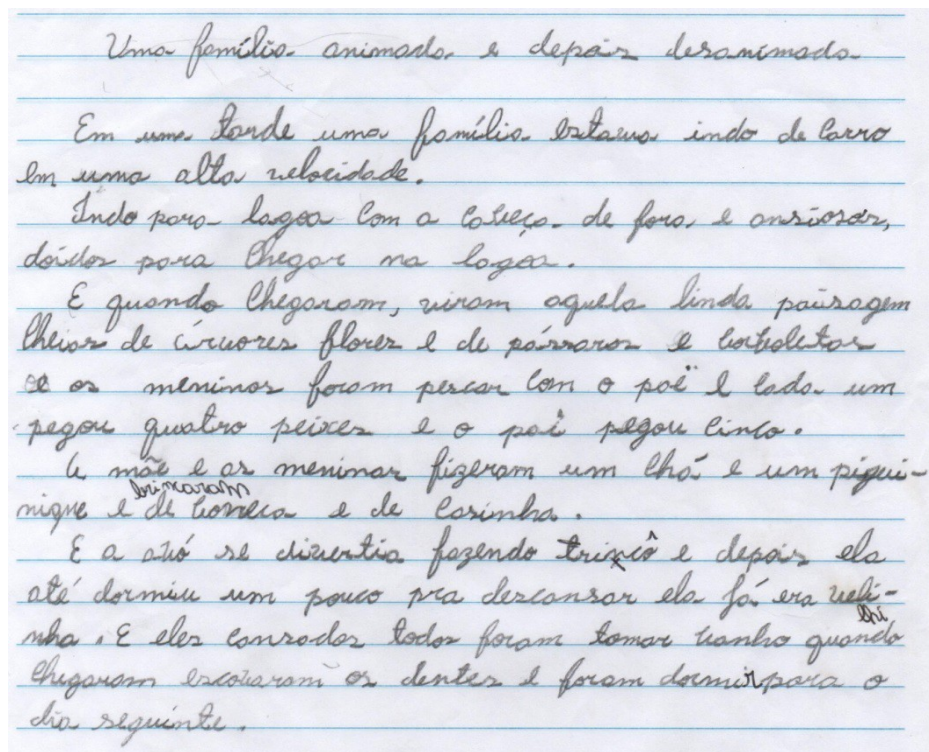 Uma família animada e depois desanimada
Em uma tarde uma família estava indo de carro
em uma alta velocidade.
Indo para lagoa com a cabeça de fora e ansiosos,
doidos para chegar na lagoa.
E quando chegaram, viram aquela linda paisagem
cheias de árvores flores e de pássaros e borboletas
e os meninos foram pescar com o pai e cada um
pegou quatro peixes e o pai pegou cinco.
A mãe e as meninas fizeram um chá e um piqui-
nique e brincaram de boneca e de casinha.
E a avó se divertia fazendo tricô e depois ela
até dormiu um pouco pra descansar ela já era veli-
nha. E eles cansados todos foram tomar banho quando
chegaram escovaram os dentes e foram dormir para o
dia seguinte.